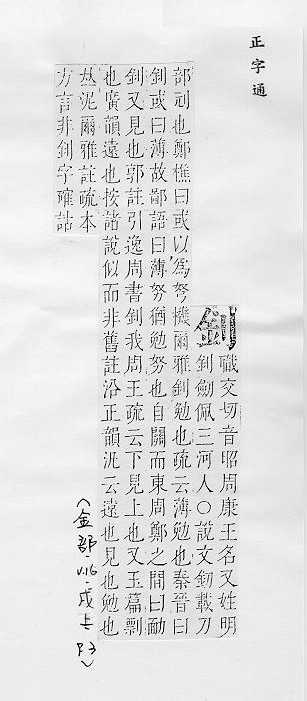 正字通
釗
職交切音昭周康王名又姓明
釗劒佩三河人○說文釗載刀
部刓也鄭樵曰或以為弩機爾雅釗勉也疏云薄勉也秦晉曰
釗或曰薄故鄙語曰薄努猶勉努也自關而東周鄭之間曰勔
釗又見也郭註引逸周書釗我周王疏云下見上也又玉篇剽
也廣韻遠也按諸說似而非舊註沿正韻泥云遠也見也勉也
泥爾雅註疏本
方言非釗字確詁
(金部·v.16·戌上 P3)